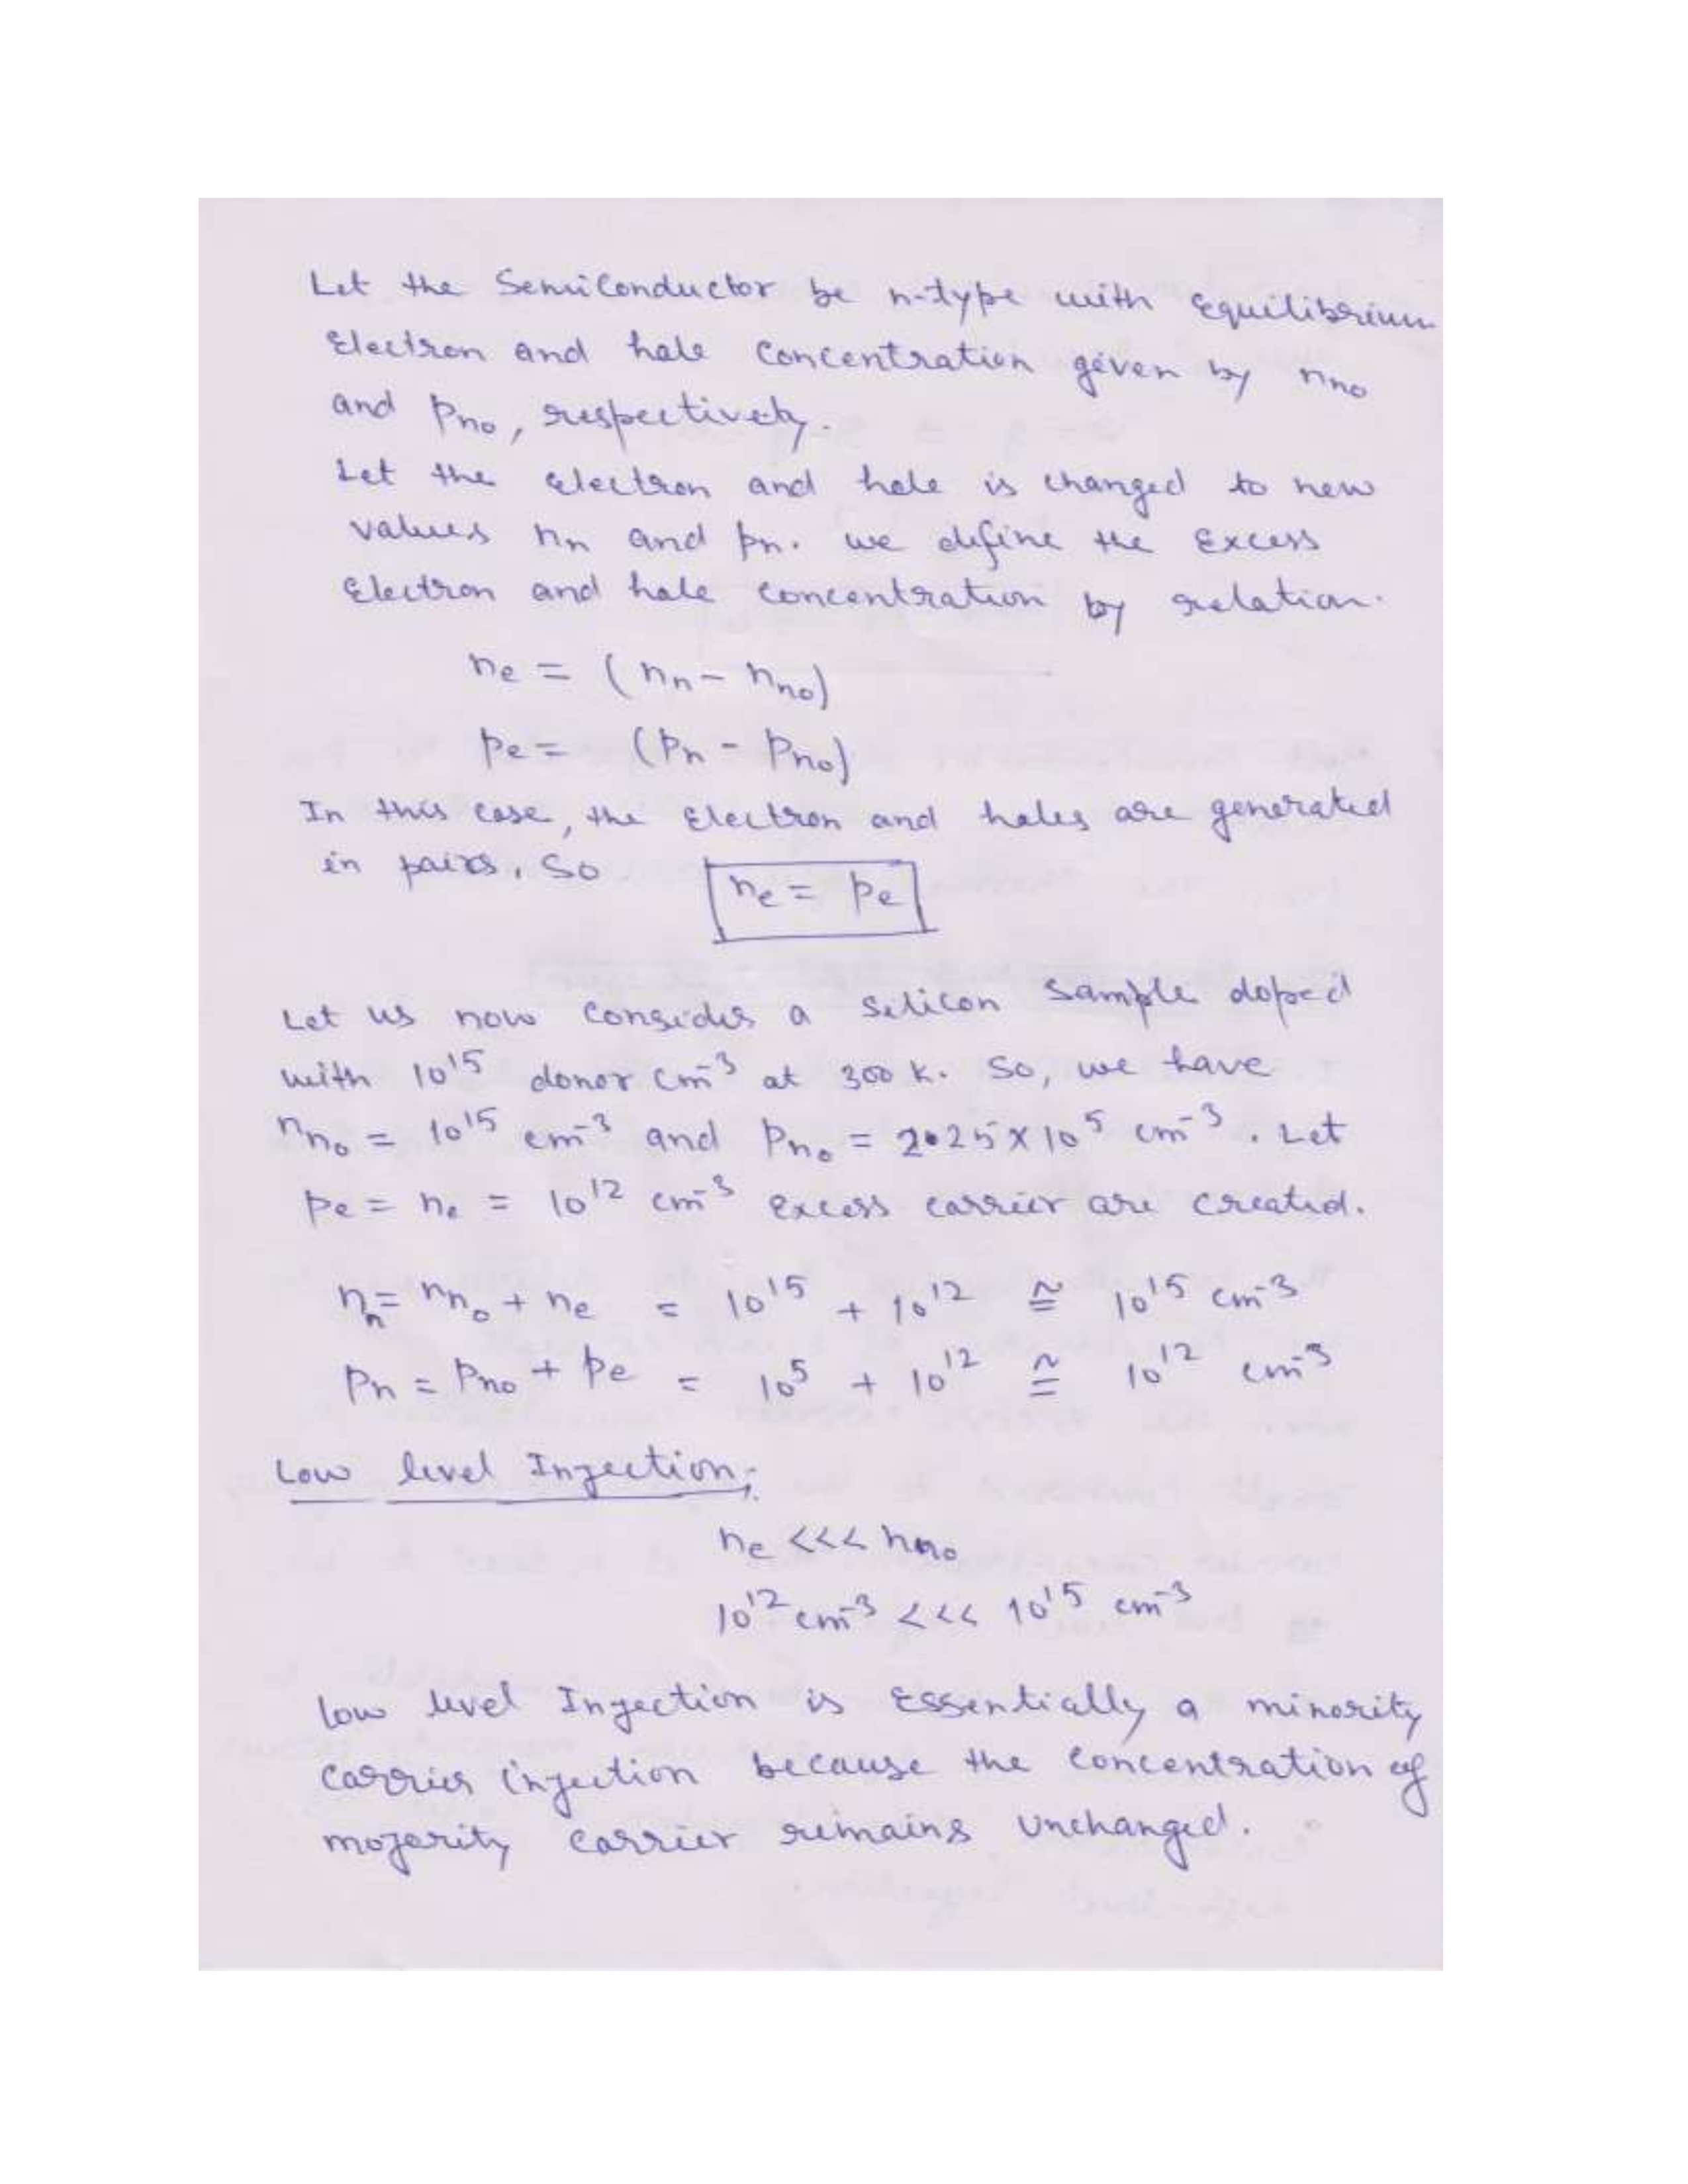 Let the Semiconductor be n-type with Equilibrium
Electron and hole concentration given by nₙ₀
and pₙ₀, respectively.
Let the electron and hole is changed to new
values nₙ and pₙ. we define the Excess
Electron and hole concentration by relation.
nₑ = (nₙ - nₙ₀)
pₑ = (pₙ - pₙ₀)
In this case, the Electron and holes are generated
in pairs. So nₑ = pₑ
Let us now consider a silicon sample doped
with 10¹⁵ donor cm⁻³ at 300 K. So, we have
nₙ₀ = 10¹⁵ cm⁻³ and pₙ₀ = 2.25 × 10⁵ cm⁻³. Let
pₑ = nₑ = 10¹² cm⁻³ excess carrier are created.
nₙ = nₙ₀ + nₑ = 10¹⁵ + 10¹² ≅ 10¹⁵ cm⁻³
pₙ = pₙ₀ + pₑ = 10⁵ + 10¹² ≅ 10¹² cm⁻³
Low level Injection:
nₑ <<< nₙ₀
10¹² cm⁻³ <<< 10¹⁵ cm⁻³
Low level Injection is Essentially a minority
carrier injection because the concentration of
mojority carrier remains unchanged.